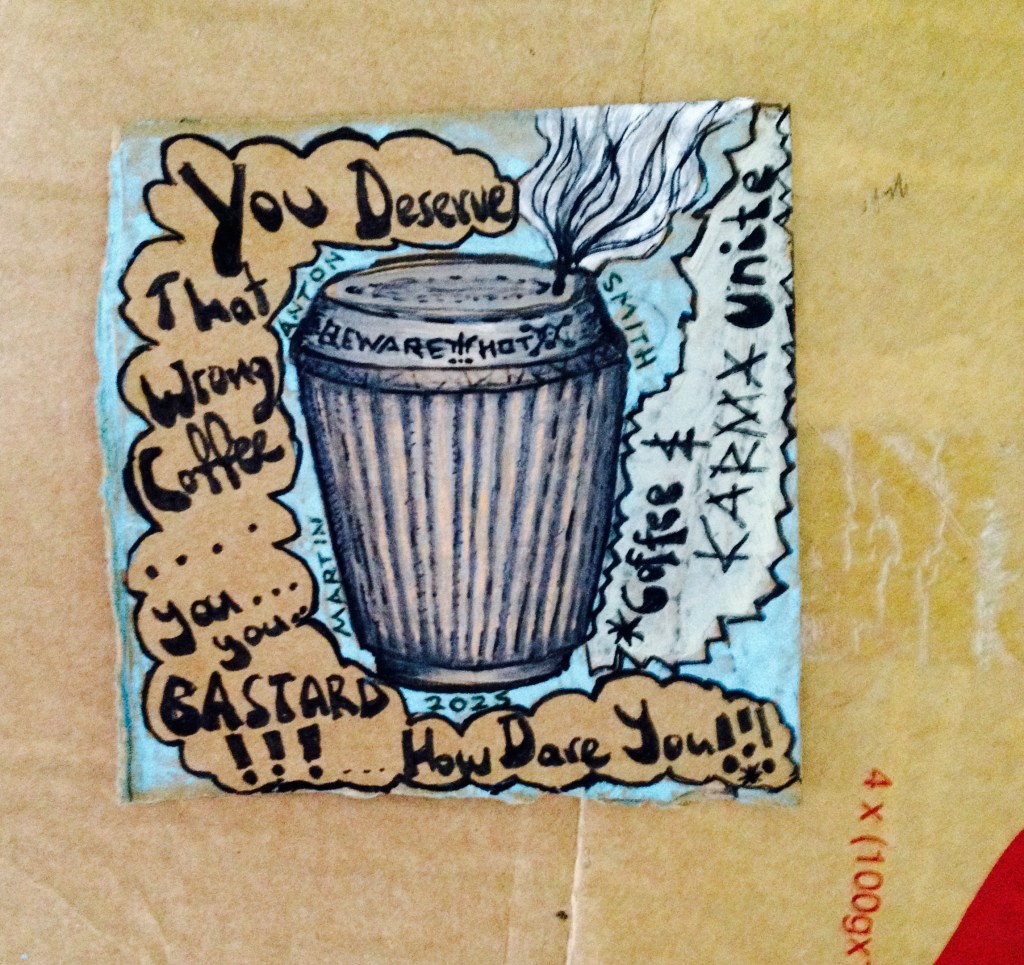 You Deserve
That
Wrong
Coffee
. . . .
you...
you...
BASTARD
!!! ....
How Dare You!!!
ANTON
SMITH
MARTIN
2025
BEWARE!!! HOT
*Coffee &
KARMA unite
4 x (100gx